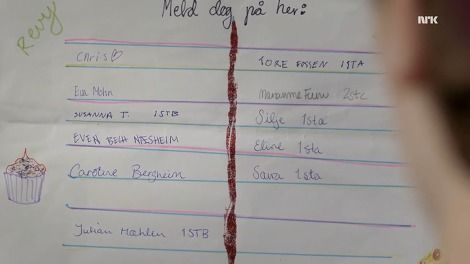 Meld deg på her:
NRK
Revy
CHRIS
TORE FOSSEN 1STA
Eva Mohn
Marianne 2stc
SUSANNA T. 1STB
Silje 1sta
EVEN BECH NÆSHEIM
Eline 1sta
Caroline Bergheim
Sara 1sta
Julian Mæhlen 1STB